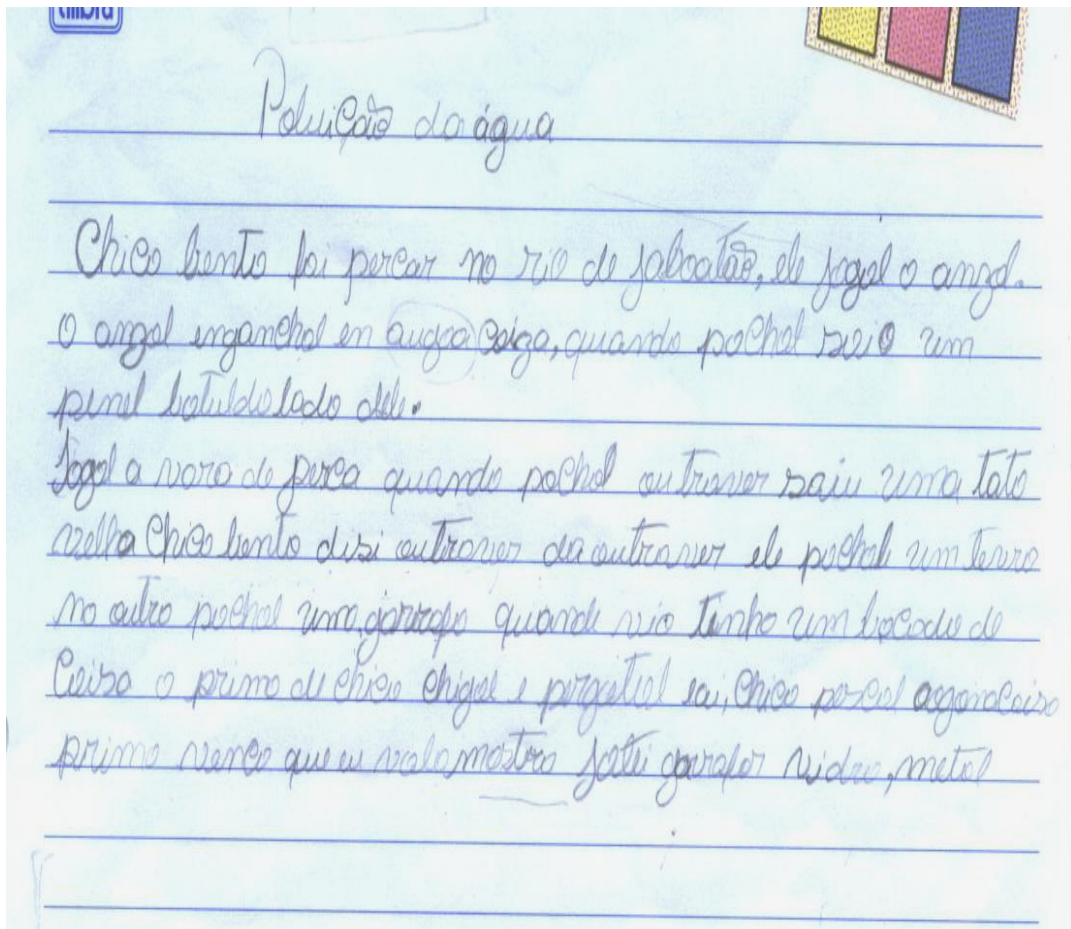 tilibra
Poluição da água
Chico bento foi percar no rio de jaboatão, ele jogol o anzol.
O anzol enganchol en augoa coiza, quando pochol saio um
penel batuldo lado dele.
Jogol a vara de perca quando pochol outraver saiu uma lata
velha Chico bento disi outraver da outraver ele pochole um
no outro pochol uma garrafa quande vio tinha um bocado de
Coiza o primo de chico chigol e pergutol eai, chico pescol augoma coiza
primo venco que eu vola mostra garrafar vidro, metal